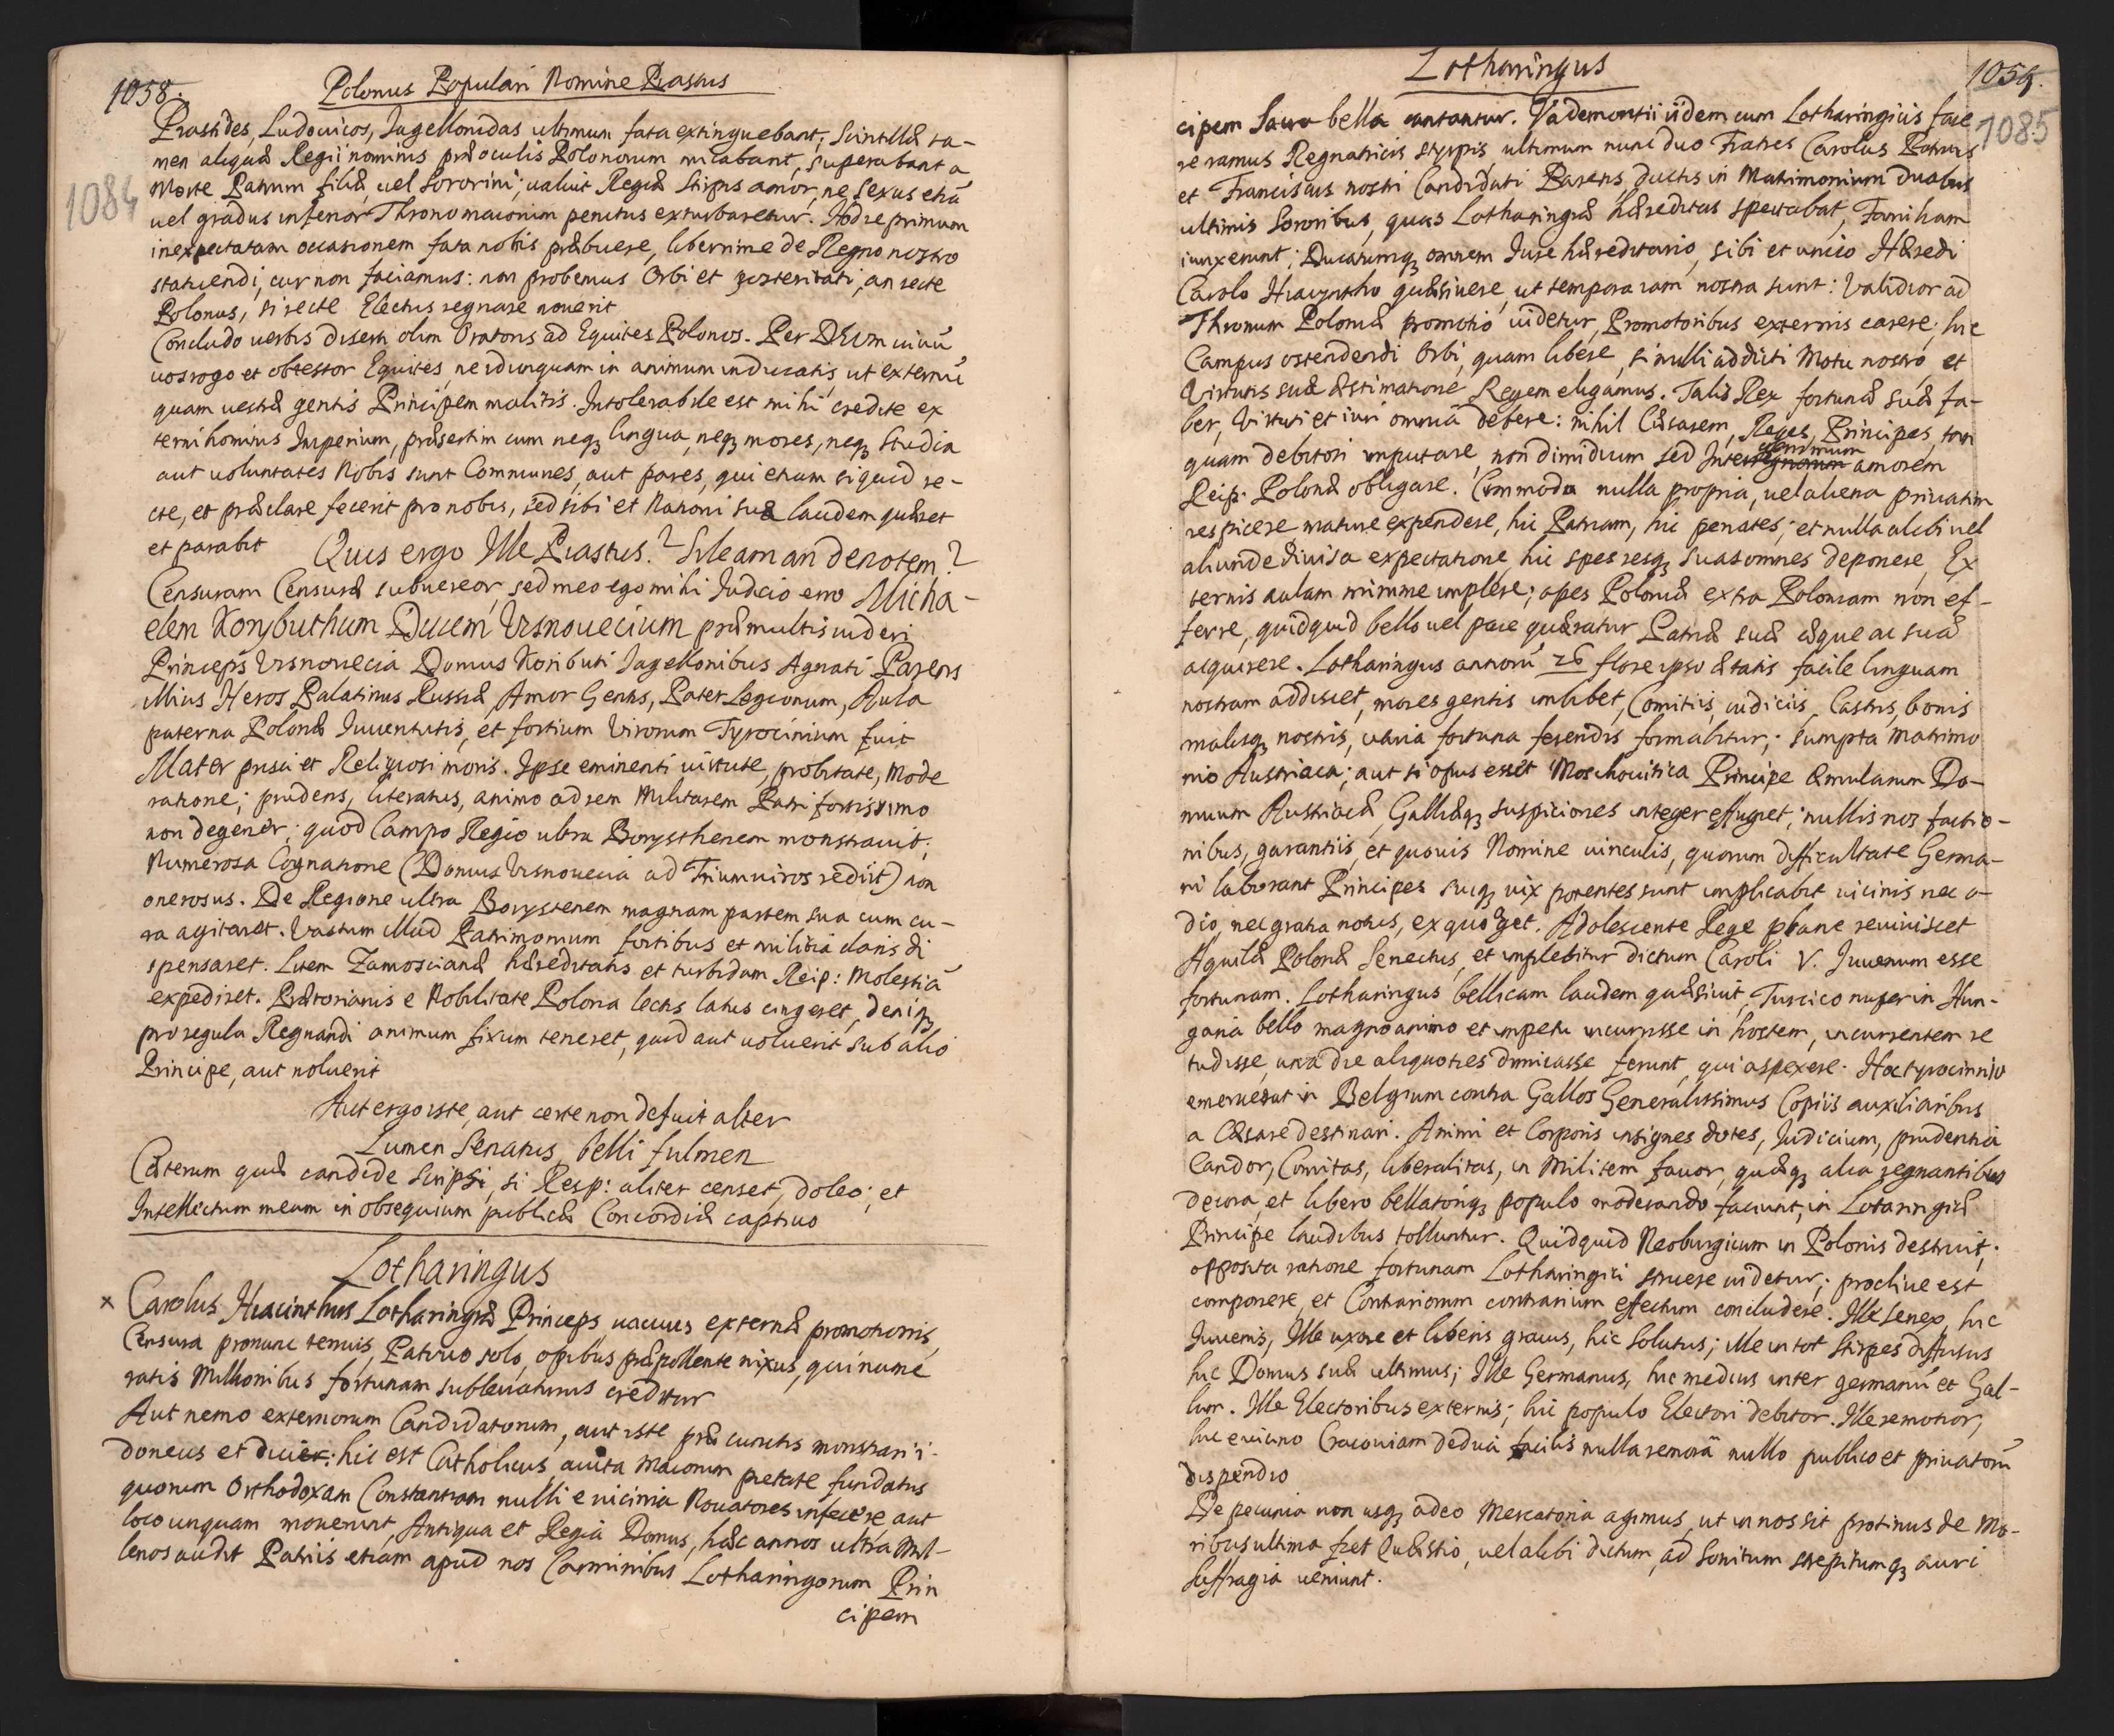 1058.
Polonus Populari Nomine Piastus
1084
Piastides, Ludouicos, Jagellonidas ultimum fata extinguebant; Scintillæ ta-
men aliquæ Regii nominis præ oculis Polonorum micabant, superabant a
Morte Patrum filiæ, uel Sororini; ualuit Regiæ Stirpis amor, ne Sexus etiā
uel gradus inferior Throno maiorum penitus exturbaretur. Hodie primum
inexpectatam occasionem fata nobis præbuere, liberrime de Regno nostro
statuendi, cur non faciamus: non probemus Orbi et posteritati, an recte
Polonus, si recte Electus regnare nouerit
Concludo uerbis diserti olim Oratoris ad Equites Polonos. Per DEum uiuū
uos rogo et obtestor Equites, ne id unquam in animum inducatis, ut externū
quam uestræ gentis Principem malitis. Intolerabile est mihi credite ex
terni hominis Imperium, præsertim cum neqꝫ lingua, neqꝫ mores, neqꝫ Studia
aut uoluntates Nobis sunt Communes, aut pares, qui etiam si quid re-
cte, et præclare fecerit pro nobis, sed sibi et Nationi suæ laudem quæret
et parabit Quis ergo Ille Piastus? Sileam an denotem?
Censuram Censuræ subuereor, sed meo ego mihi Iudicio ero Micha-
elem Korybuthum Ducem Visnouecium præ multis uideri
Princeps Visnouecia Domus Koributi Jagellonibus Agnati Parens
illius Heros Palatinus Russiæ, Amor Gentis, Pater Legionum, Aula
paterna Polonæ Iuuentutis, et fortium Virorum Tyrocinium fuit
Mater prisci et Religiosi moris. Ipse eminenti uirtute, probitate, Mode
ratione; prudens, literatus, animo ad rem Militarem Patri fortissimo
non degener; quod Campo Regio ultra Borysthenem monstrauit;
Numerosa Cognatione (Domus Visnouecia ad Triumuiros rediit) non
onerosus. De Regione ultra Borystenem magnam partem sua cum cu-
ra agitaret. Vastum illud Patrimonium fortibus et militia claris di
spensaret. Litem Zamoscianæ hæreditatis et turbidam Reip: Molestiā
expediret. Prætorianis e Nobilitate Polona lectis latus cingeret, deniqꝫ
pro regula Regnandi animum fixum teneret, quid aut uoluerit sub alio
Principe, aut noluerit
Aut ergo iste, aut certe non defuit alter
Lumen Senatus, belli fulmen
Cæterum quæ candide scripsi, si Resp: aliter censet, doleo; et
Intellectum meum in obsequium publicæ Concordiæ captiuo
Lotharingus
x Carolus Hiacinthus Lotharingiæ Princeps, uacuus externæ promotionis,
Censura pro nunc tenuis, Patruo solo, opibus præpollente nixus, qui nume
ratis Millionibus fortunam subleuaturus creditur
Aut nemo externorum Candidatorum, aut iste præ cunctis monstrari i-
doneus et : hic est Catholicus, auita Maiorum pietate fundatus
quorum Orthodoxam Constantiam nulli e uicinia Nouatores infecere, aut
loco unquam mouerunt, Antiqua et Regia Domus, hæc annos ultra Mil-
lenos audit Patriis etiam apud nos Carminibus Lotharingorum Prin
cipem
Lotharingus
1059.
1085
cipem Sacra bella cantantur. Vademontii iidem cum Lotharingicis face
re ramus Regnatricis styrpis, ultimum nunc duo Fratres Carolus Patruus
et Franciscus nostri Candidati Parens, ductis in Matrimonium Duabus
ultimis Sororibus, quas Lotharingiæ hæreditas spectabat, Familiam
iunxerunt; Ducatumqꝫ omnem Iure hæreditario, sibi et unico Hæredi
Carolo Hiacyntho quæsiuere, ut tempora iam nostra sunt: Validior ad
Thronum Poloniæ promotio uidetur, Promotoribus externis carere; hic
Campus ostendendi Orbi, quam libere, si nulli addicti Motu nostro, et
Virtutis suæ æstimatione Regem eligamus. Talis Rex fortunæ suæ fa-
ber, Virtuti et iuri omnia debere: nihil Cæsarem, Reges, Principes, tan
quam debitori imputare, non dimidium sed amorem
Reip. Polonæ obligare. Commoda nulla propria, uel aliena priuatim
respicere mature expendere, hic Patriam, hic penates; et nulla alibi uel
aliunde diuisa expectatione, hic spes resqꝫ suas omnes deponere, Ex
ternis aulam minime implere; opes Poloniæ extra Poloniam non ef-
ferre, quidquid bello uel pace quæratur Patriæ suæ æque ac suā
acquirere. Lotharingus annorū 26 flore ipso ætatis facile linguam
nostram addiscet, mores gentis imbibet, Comitiis, iudiciis, Castris, bonis
malisqꝫ nostris, uaria fortuna ferendis formabitur; sumpta Matrimo
nio Austriaca; aut si opus esset Moschouitica Principe æmularum Do-
muum Austriacæ, Gallicæqꝫ suspiciones integer effugiet; nullis nos factio-
nibus, garantiis, et quouis Nomine uinculis, quorum difficultate Germa-
ni laborant Principes suiqꝫ uix potentes sunt implicabit uicinis nec o-
dio, nec gratia notus, ex quo eget. Adolescente Rege plane reuiuiscet
Aquilæ Polonæ Senectus, et implebitur dictum Caroli V. Iuuenum esse
fortunam. Lotharingus bellicam laudem quæsiuit, Turcico nuper in Hun-
garia bello magno animo et impetu incurrisse in hostem, incurrentem re
tudisse, una die aliquoties dimicasse ferunt, qui aspexere. Hoc tyrocinnio
emeruerat in Belgium contra Gallos Generalissimus Copiis auxiliaribus
a Cæsare destinari. Animi et Corporis insignes dotes, Iudicium, prudentia
Candor, Comitas, liberalitas, in Militem fauor, quæqꝫ alia regnantibus
decora, et libero bellatoriqꝫ populo moderando faciunt, in Lotaringiæ
Principe laudibus tolluntur. Quidquid Neoburgicum in Polonis destruit;
opposita ratione fortunam Lotharingici struere uidetur; procliue est
componere, et Contrariorum contrarium effectum concludere. Ille senex, hic
Iuuenis, Ille uxore et liberis grauis, hic Solutus; ille in tot Stirpes diffusus
hic Domus suæ ultimus; Ille Germanus, hic medius inter germanū et Gal-
lum. Ille Electoribus externis; hic populo Electori debitor. Ille remotior,
hic e uicino Cracouiam deduci facilis nulla remorā nullo publico et priuatorū
dispendio
De pecunia non usqꝫ adeo Mercatoria agimus, ut in nos sit protinus de Mo-
ribus ultima fiet Quæstio, uel alibi dictum, ad sonitum strepitumqꝫ auri
suffragia ueniunt.